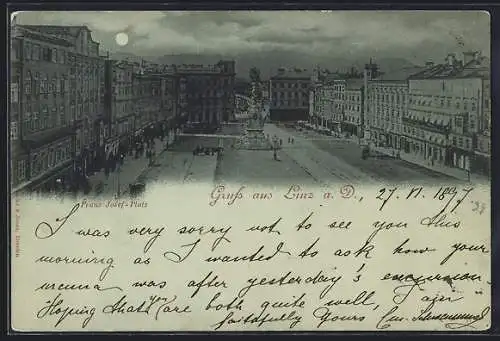 Franz Josef-Platz
Gruß aus Linz a. D., 27. VI. 1897
I was very sorry not to see you this
morning as I wanted to ask how your
mcuna was after yesterday's excursion
Hoping that you are both quite well, I am
faithfully Yours